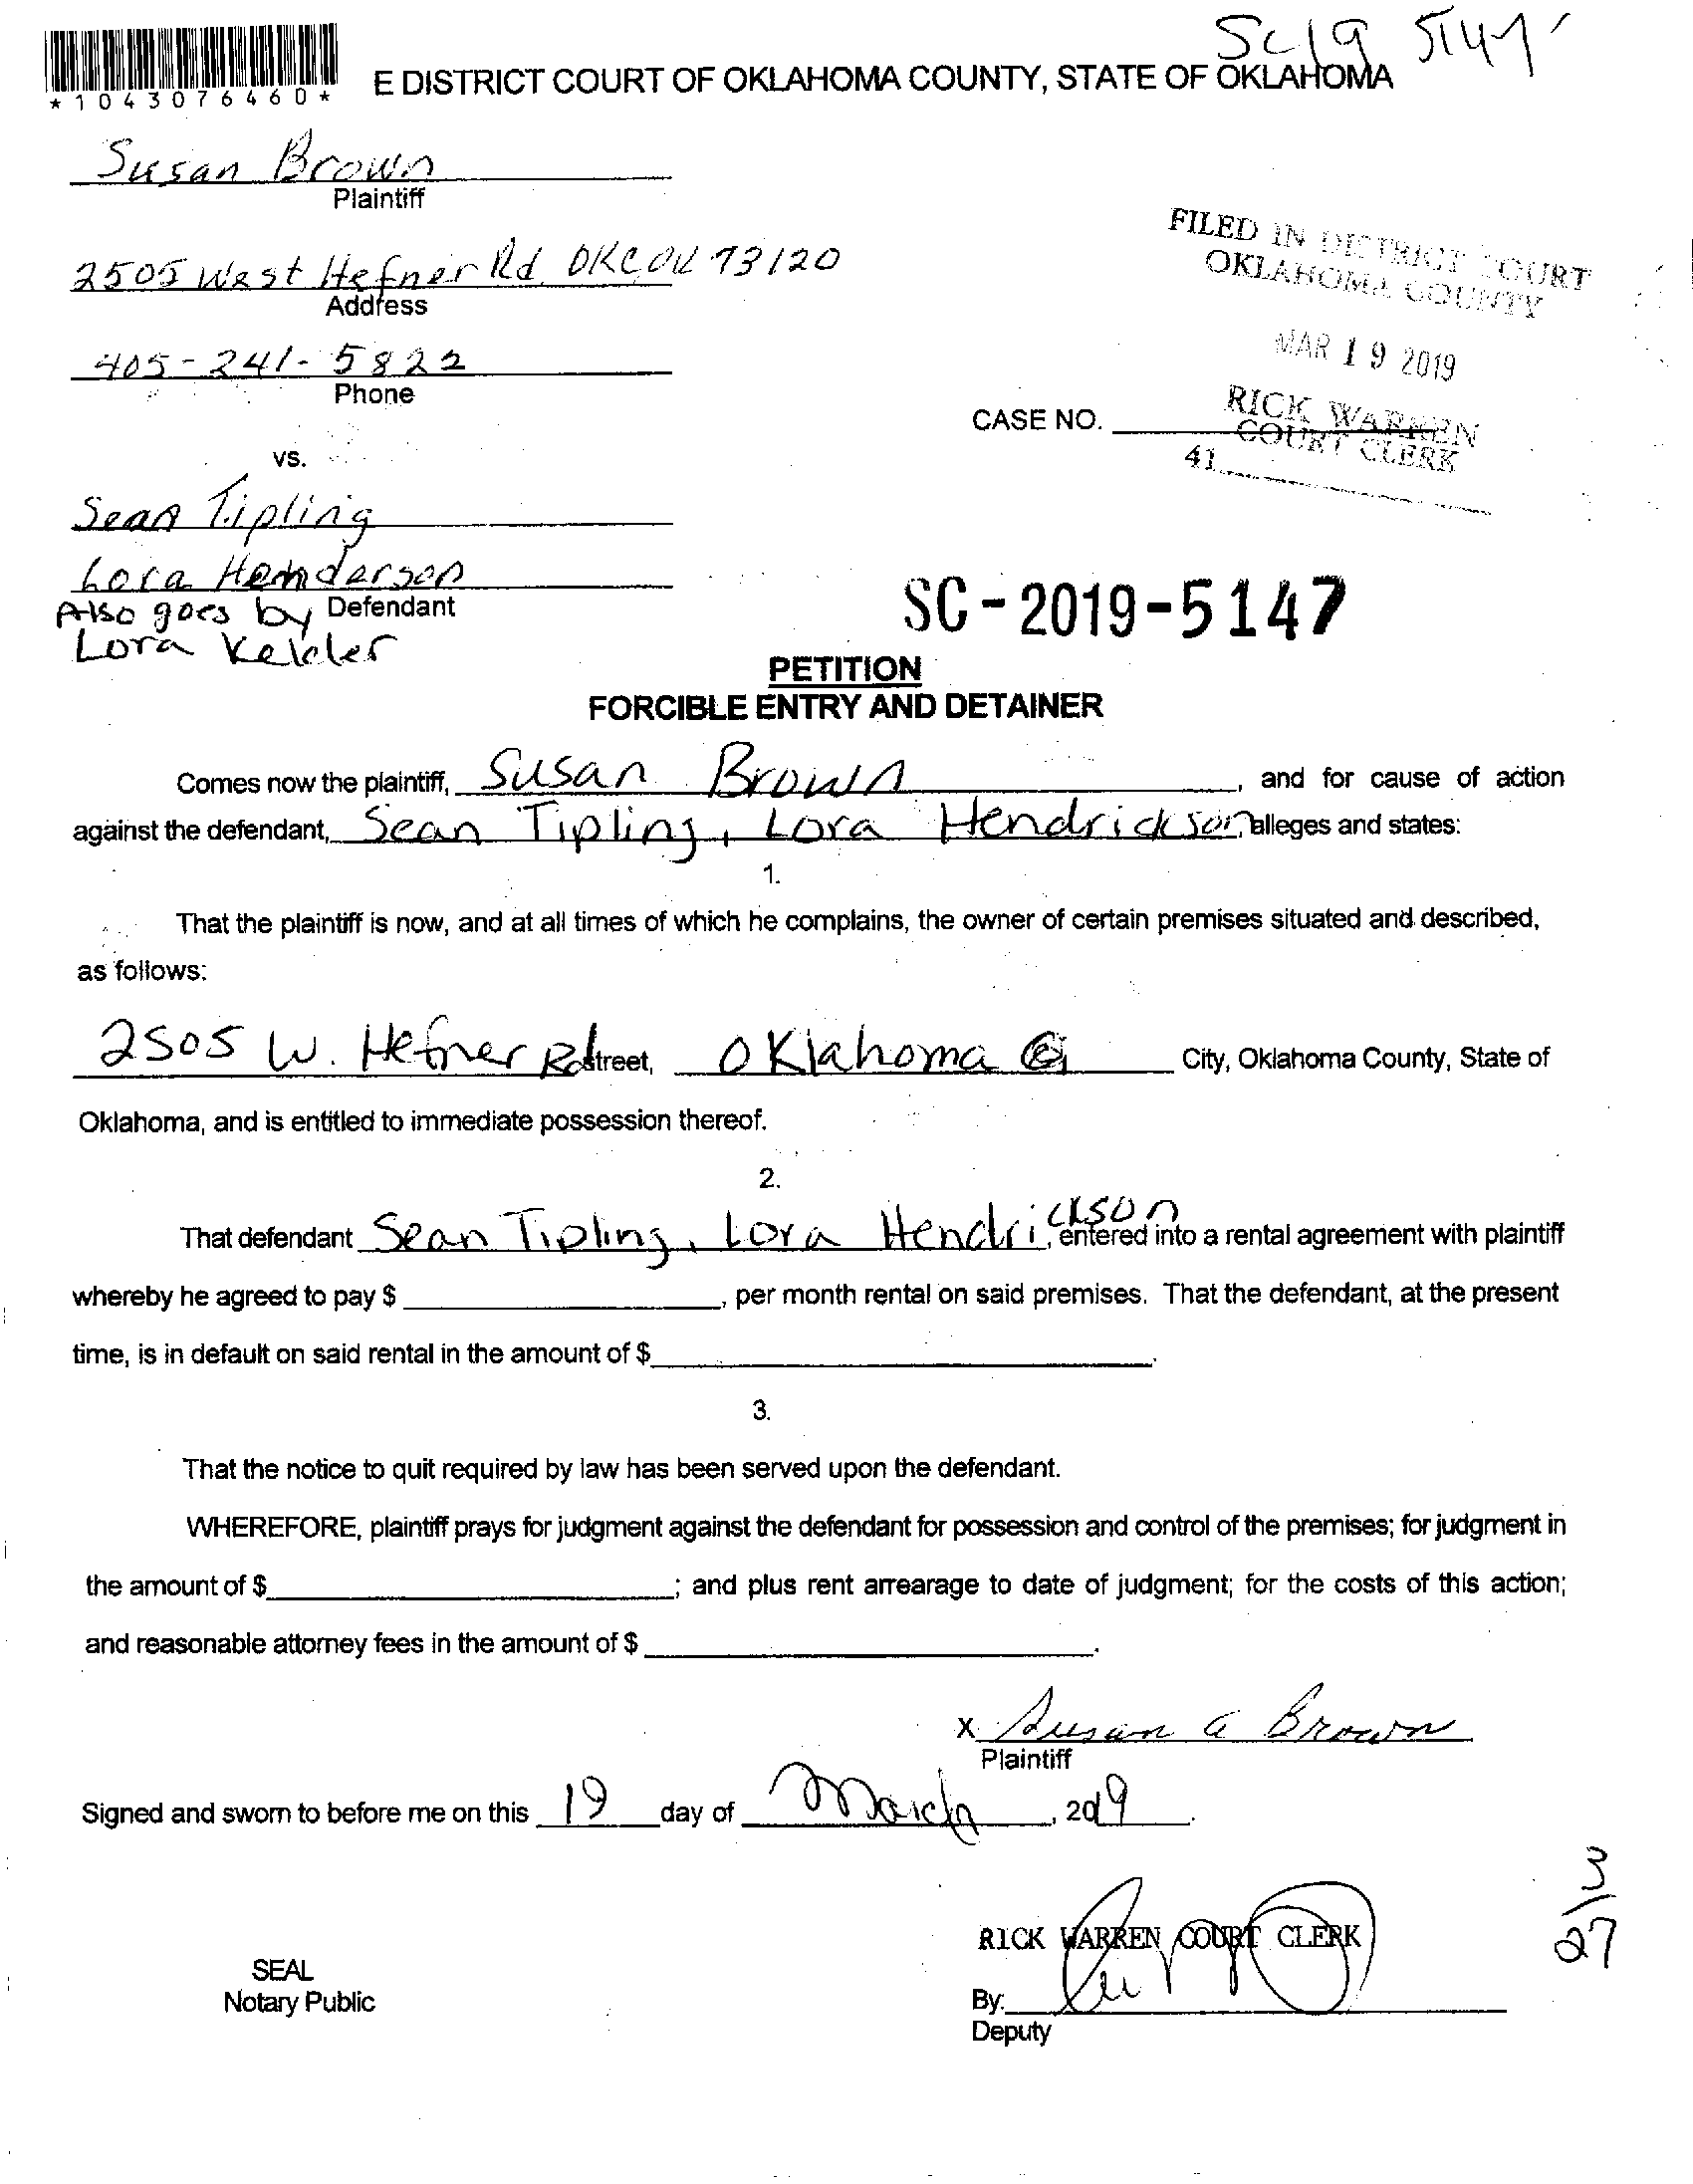 Sc19 5147
*1043076460*
E DISTRICT COURT OF OKLAHOMA COUNTY, STATE OF OKLAHOMA
Susan Brown
Plaintiff
2505 West Hefner Rd. OKC OK 73120
Address
405-241-5822
Phone
FILED IN DISTRICT COURT
OKLAHOMA COUNTY
MAR 19 2019
RICK WARREN
COURT CLERK
41
CASE NO.
vs.
Sean Tipling
Lora Henderson
Defendant
Also goes by
Lora Kelder
SC-2019-5147
PETITION
FORCIBLE ENTRY AND DETAINER
Comes now the plaintiff, Susan Brown, and for cause of action
against the defendant, Sean Tipling, Lora Hendrickson, alleges and states:
1.
That the plaintiff is now, and at all times of which he complains, the owner of certain premises situated and described,
as follows:
2505 W. Hefner Rd Street, Oklahoma City, Oklahoma County, State of
Oklahoma, and is entitled to immediate possession thereof.
2.
That defendant Sean Tipling, Lora Hendrickson, entered into a rental agreement with plaintiff
whereby he agreed to pay $ , per month rental on said premises. That the defendant, at the present
time, is in default on said rental in the amount of $ .
3.
That the notice to quit required by law has been served upon the defendant.
WHEREFORE, plaintiff prays for judgment against the defendant for possession and control of the premises; for judgment in
the amount of $ ; and plus rent arrearage to date of judgment; for the costs of this action;
and reasonable attorney fees in the amount of $ .
X Susan a Brown
Plaintiff
Signed and sworn to before me on this 19 day of March, 2019.
3/27
RICK WARREN COURT CLERK
SEAL
Notary Public
By:
Deputy